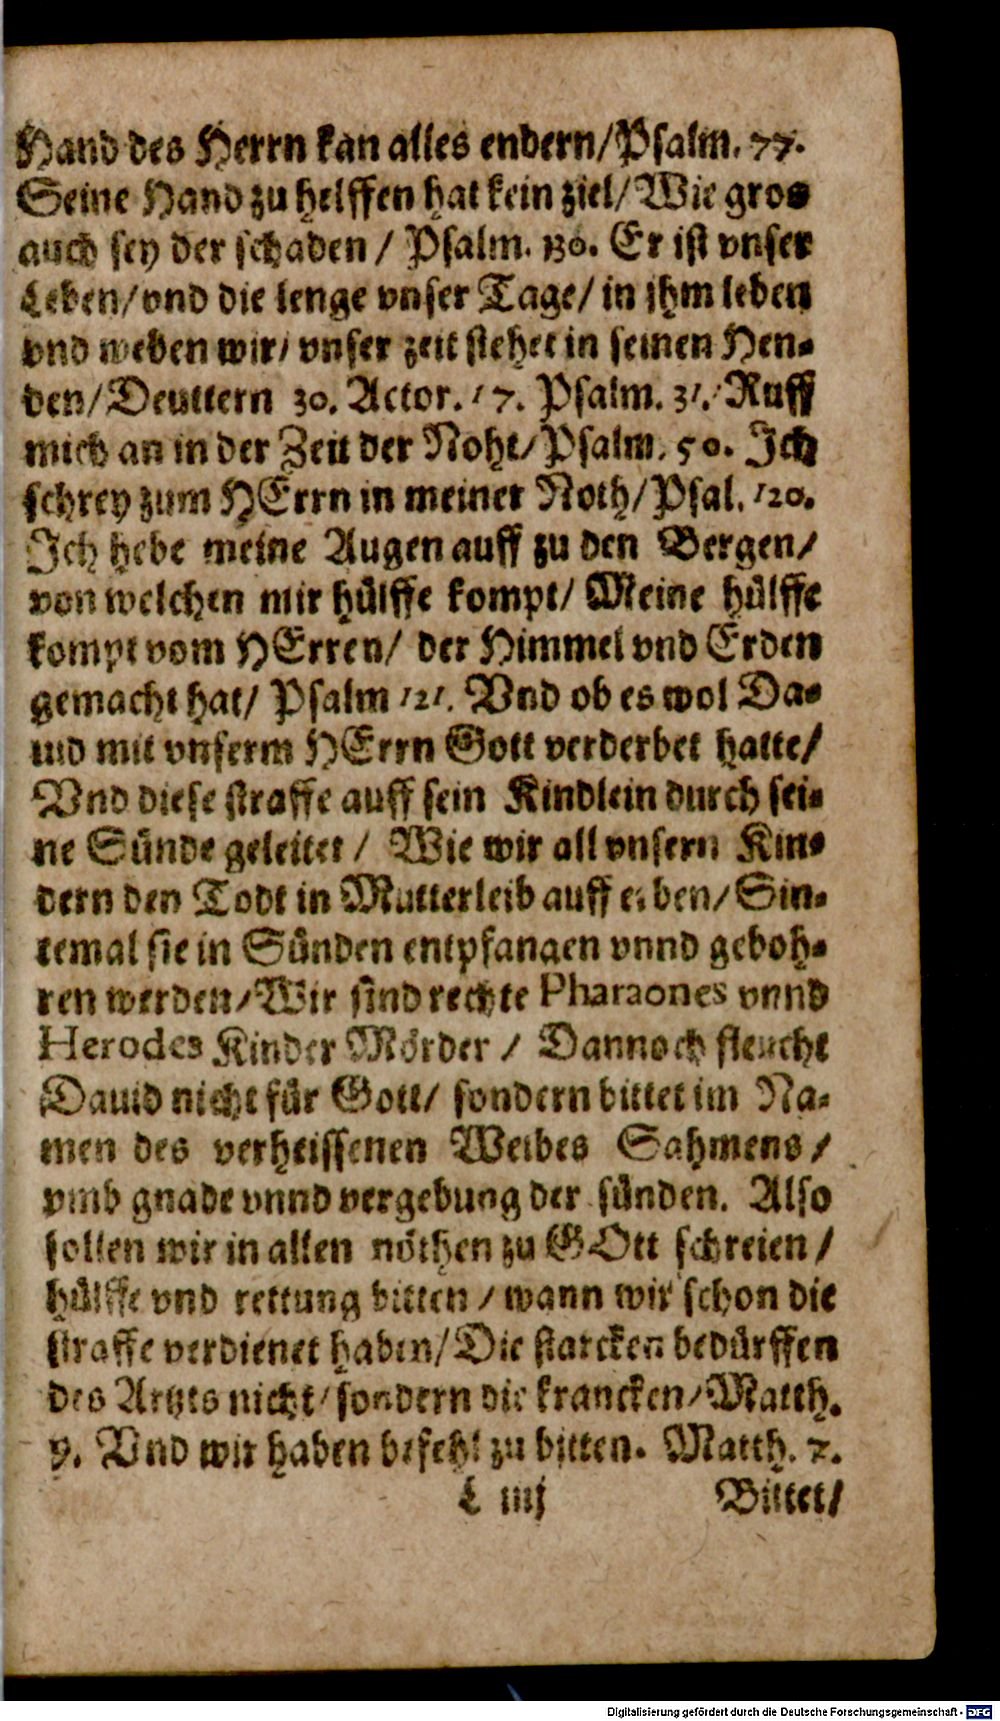 Hand des Herrn kan alles endern/Psalm. 77.
Seine Hand zu helffen hat kein ziel/Wie gros
auch sey der schaden / Psalm. 130. Er ist vnser
Leben/vnd die lenge vnser Tage/ in jhm leben
vnd weben wir/ vnser zeit stehet in seinen Hen-
den/Deuttern 30. Actor. 17. Psalm. 31. Ruff
mich an in der Zeit der Noht/Psalm. 50. Ich
schrey zum HErrn in meiner Noth/Psal. 120.
Ich hebe meine Augen auff zu den Bergen/
von welchen mir hülffe kompt/ Meine hülffe
kompt vom HErren/ der Himmel vnd Erden
gemacht hat/ Psalm 121. Vnd ob es wol Da-
uid mit vnserm HErrn Gott verderbet hatte/
Vnd diese straffe auff sein Kindlein durch sei-
ne Sünde geleitet / Wie wir all vnsern Kin-
dern den Todt in Mutterleib auff erben/Sin-
temal sie in Sünden entpfangen vnnd geboh-
ren werden/Wir sind rechte Pharaones vnnd
Herodes Kinder Mörder / Dannoch fleucht
Dauid nicht für Gott/ sondern bittet im Na-
men des verheissenen Weibes Sahmens /
vmb gnade vnnd vergebung der sünden. Also
sollen wir in allen nöthen zu GOtt schreien /
hülffe vnd rettung bitten / wann wir schon die
straffe verdienet haben/Die starcken bedürffen
des Artzts nicht/sondern die krancken/Matth.
9. Vnd wir haben befehl zu bitten. Matth. 7.
L iiij Bittet/
Digitalisierung gefördert durch die Deutsche Forschungsgemeinschaft - DFG